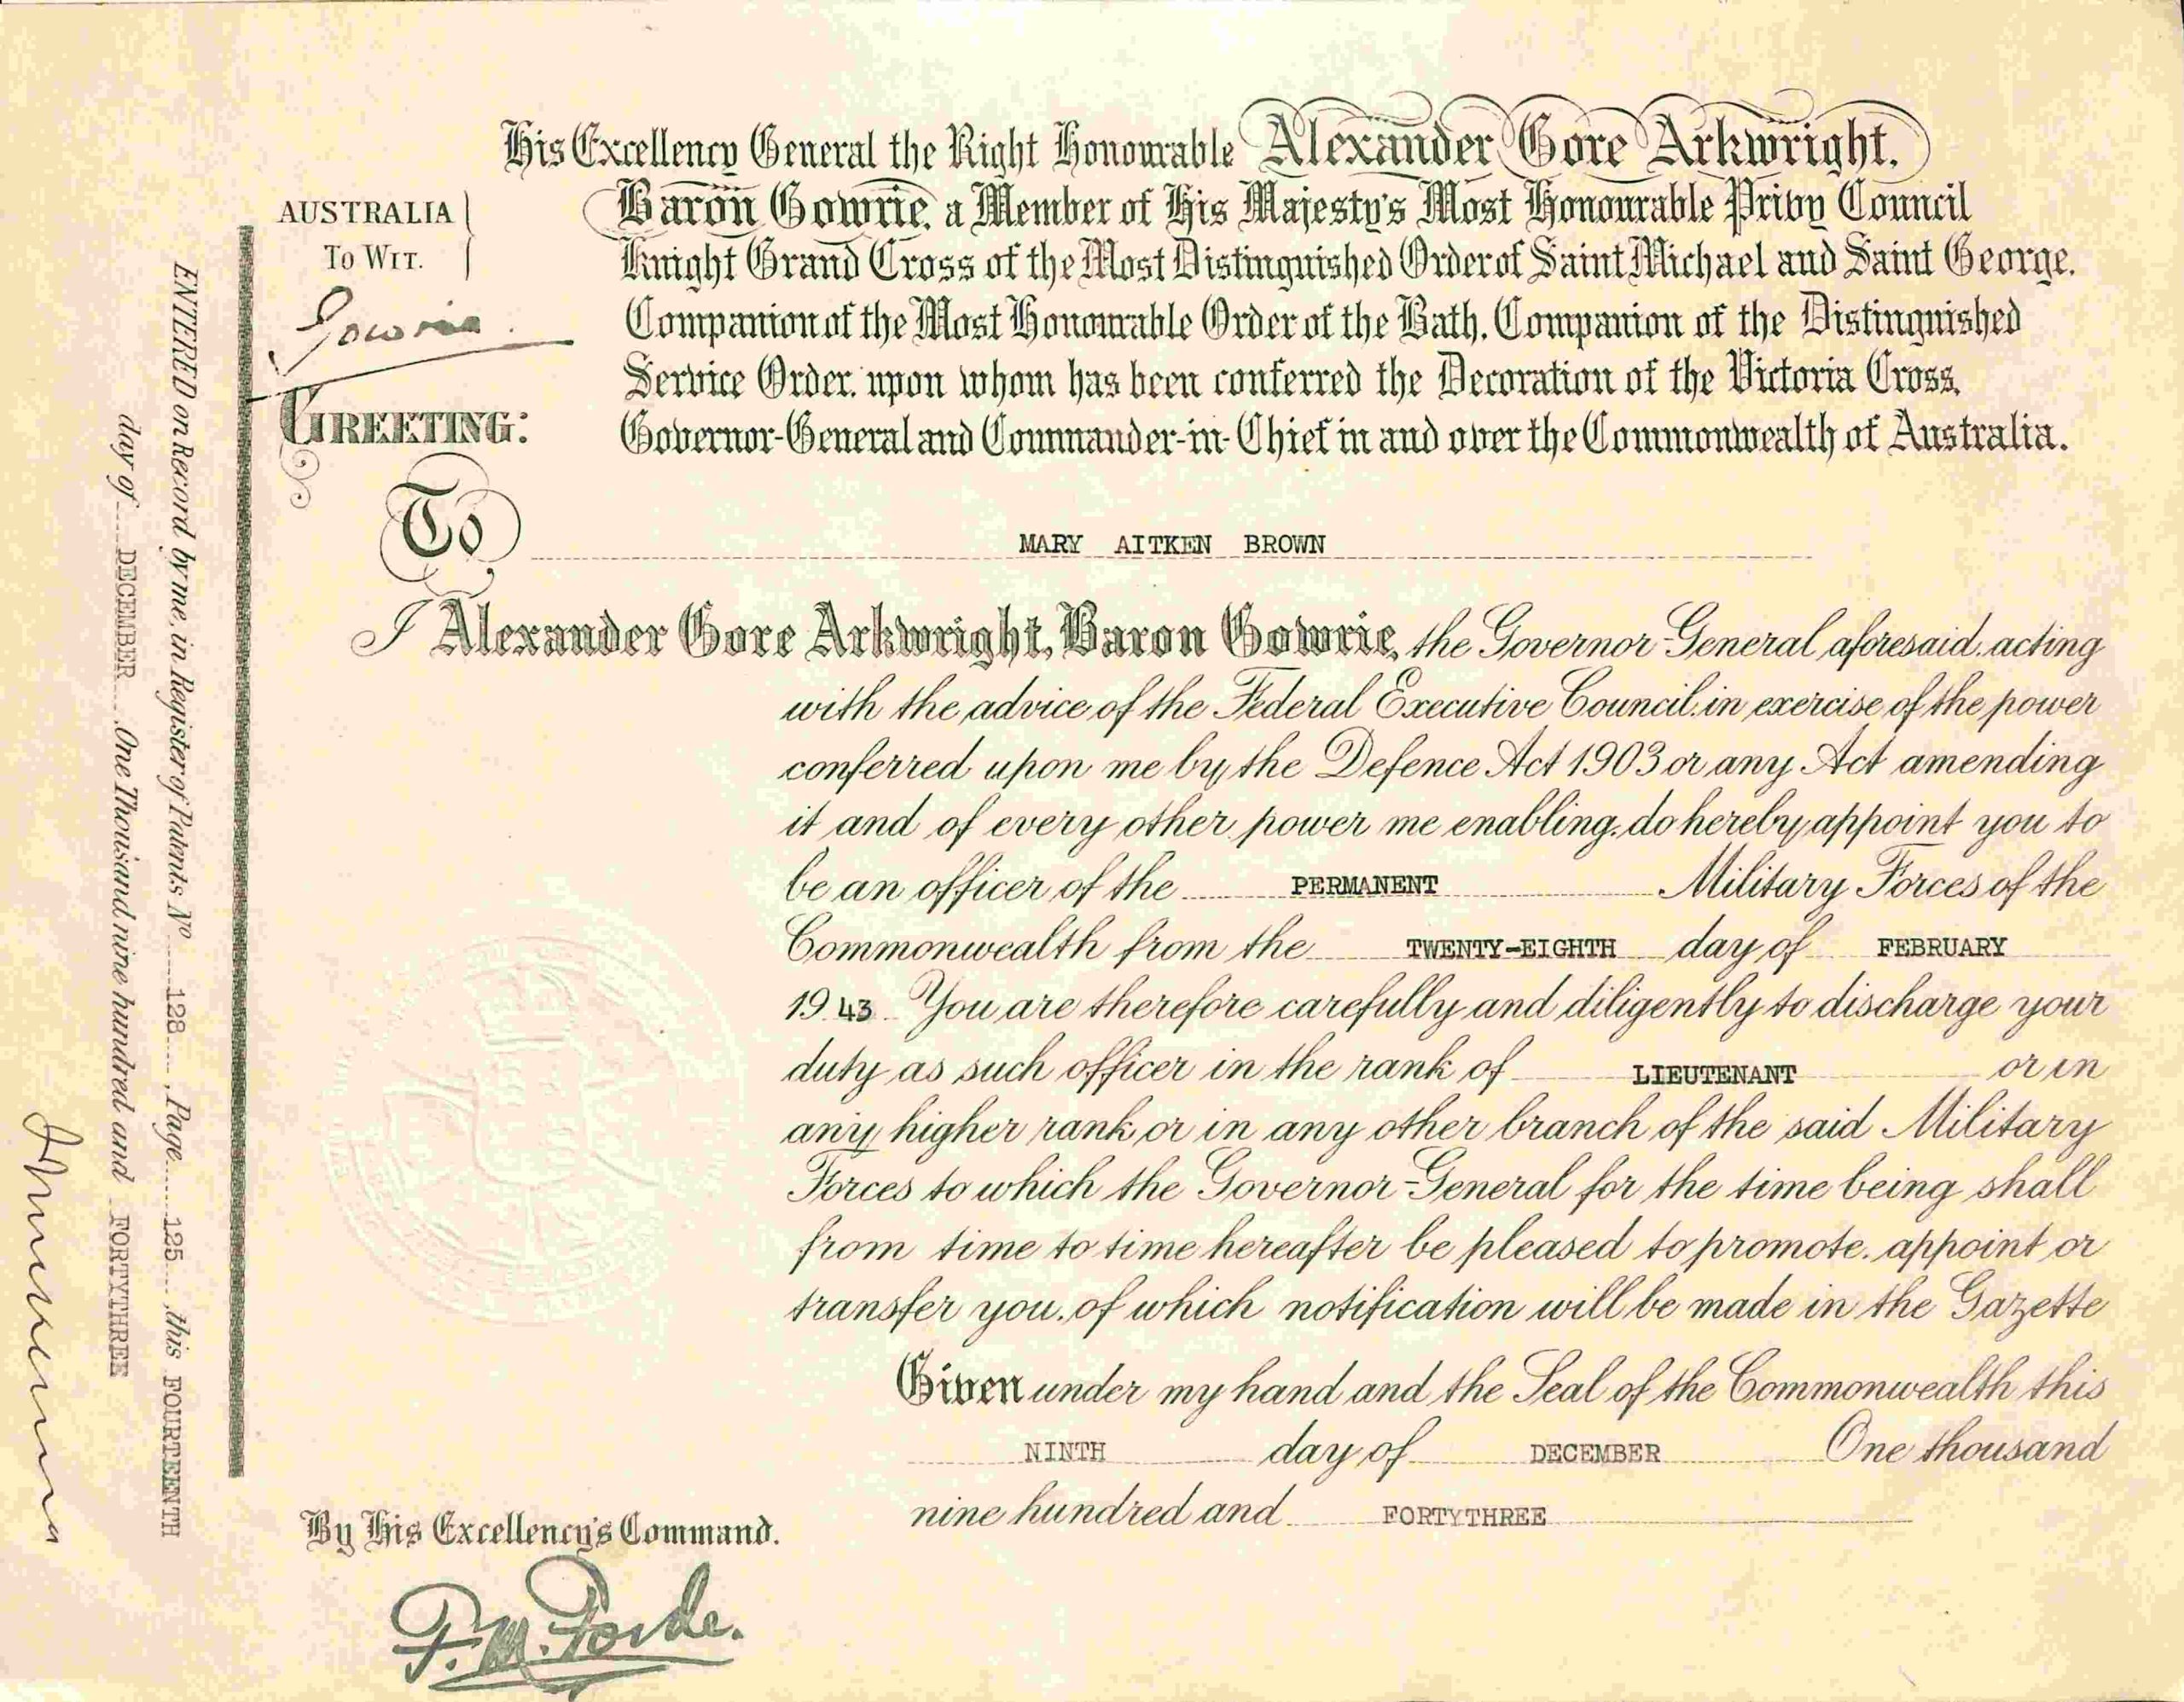 His Excellency General the Right Honourable Alexander Gore Arkwright,
Baron Gowrie, a Member of His Majesty's Most Honourable Privy Council
Knight Grand Cross of the Most Distinguished Order of Saint Michael and Saint George,
Companion of the Most Honourable Order of the Bath, Companion of the Distinguished
Service Order, upon whom has been conferred the Decoration of the Victoria Cross,
Governor-General and Commander-in-Chief in and over the Commonwealth of Australia.
AUSTRALIA
TO WIT.
Gowrie.
GREETING:
To MARY AITKEN BROWN
I Alexander Gore Arkwright, Baron Gowrie, the Governor-General aforesaid, acting
with the advice of the Federal Executive Council, in exercise of the power
conferred upon me by the Defence Act 1903 or any Act amending
it and of every other power me enabling, do hereby appoint you to
be an officer of the PERMANENT Military Forces of the
Commonwealth from the TWENTY-EIGHTH day of FEBRUARY
1943 You are therefore carefully and diligently to discharge your
duty as such officer in the rank of LIEUTENANT or in
any higher rank or in any other branch of the said Military
Forces to which the Governor-General for the time being shall
from time to time hereafter be pleased to promote, appoint or
transfer you, of which notification will be made in the Gazette
Given under my hand and the Seal of the Commonwealth this
NINTH day of DECEMBER One thousand
nine hundred and FORTYTHREE
By His Excellency's Command.
F. M. Forde.
ENTERED on Record by me, in Register of Patents No 128, Page 125, this FOURTEENTH
day of DECEMBER One Thousand nine hundred and FORTYTHREE